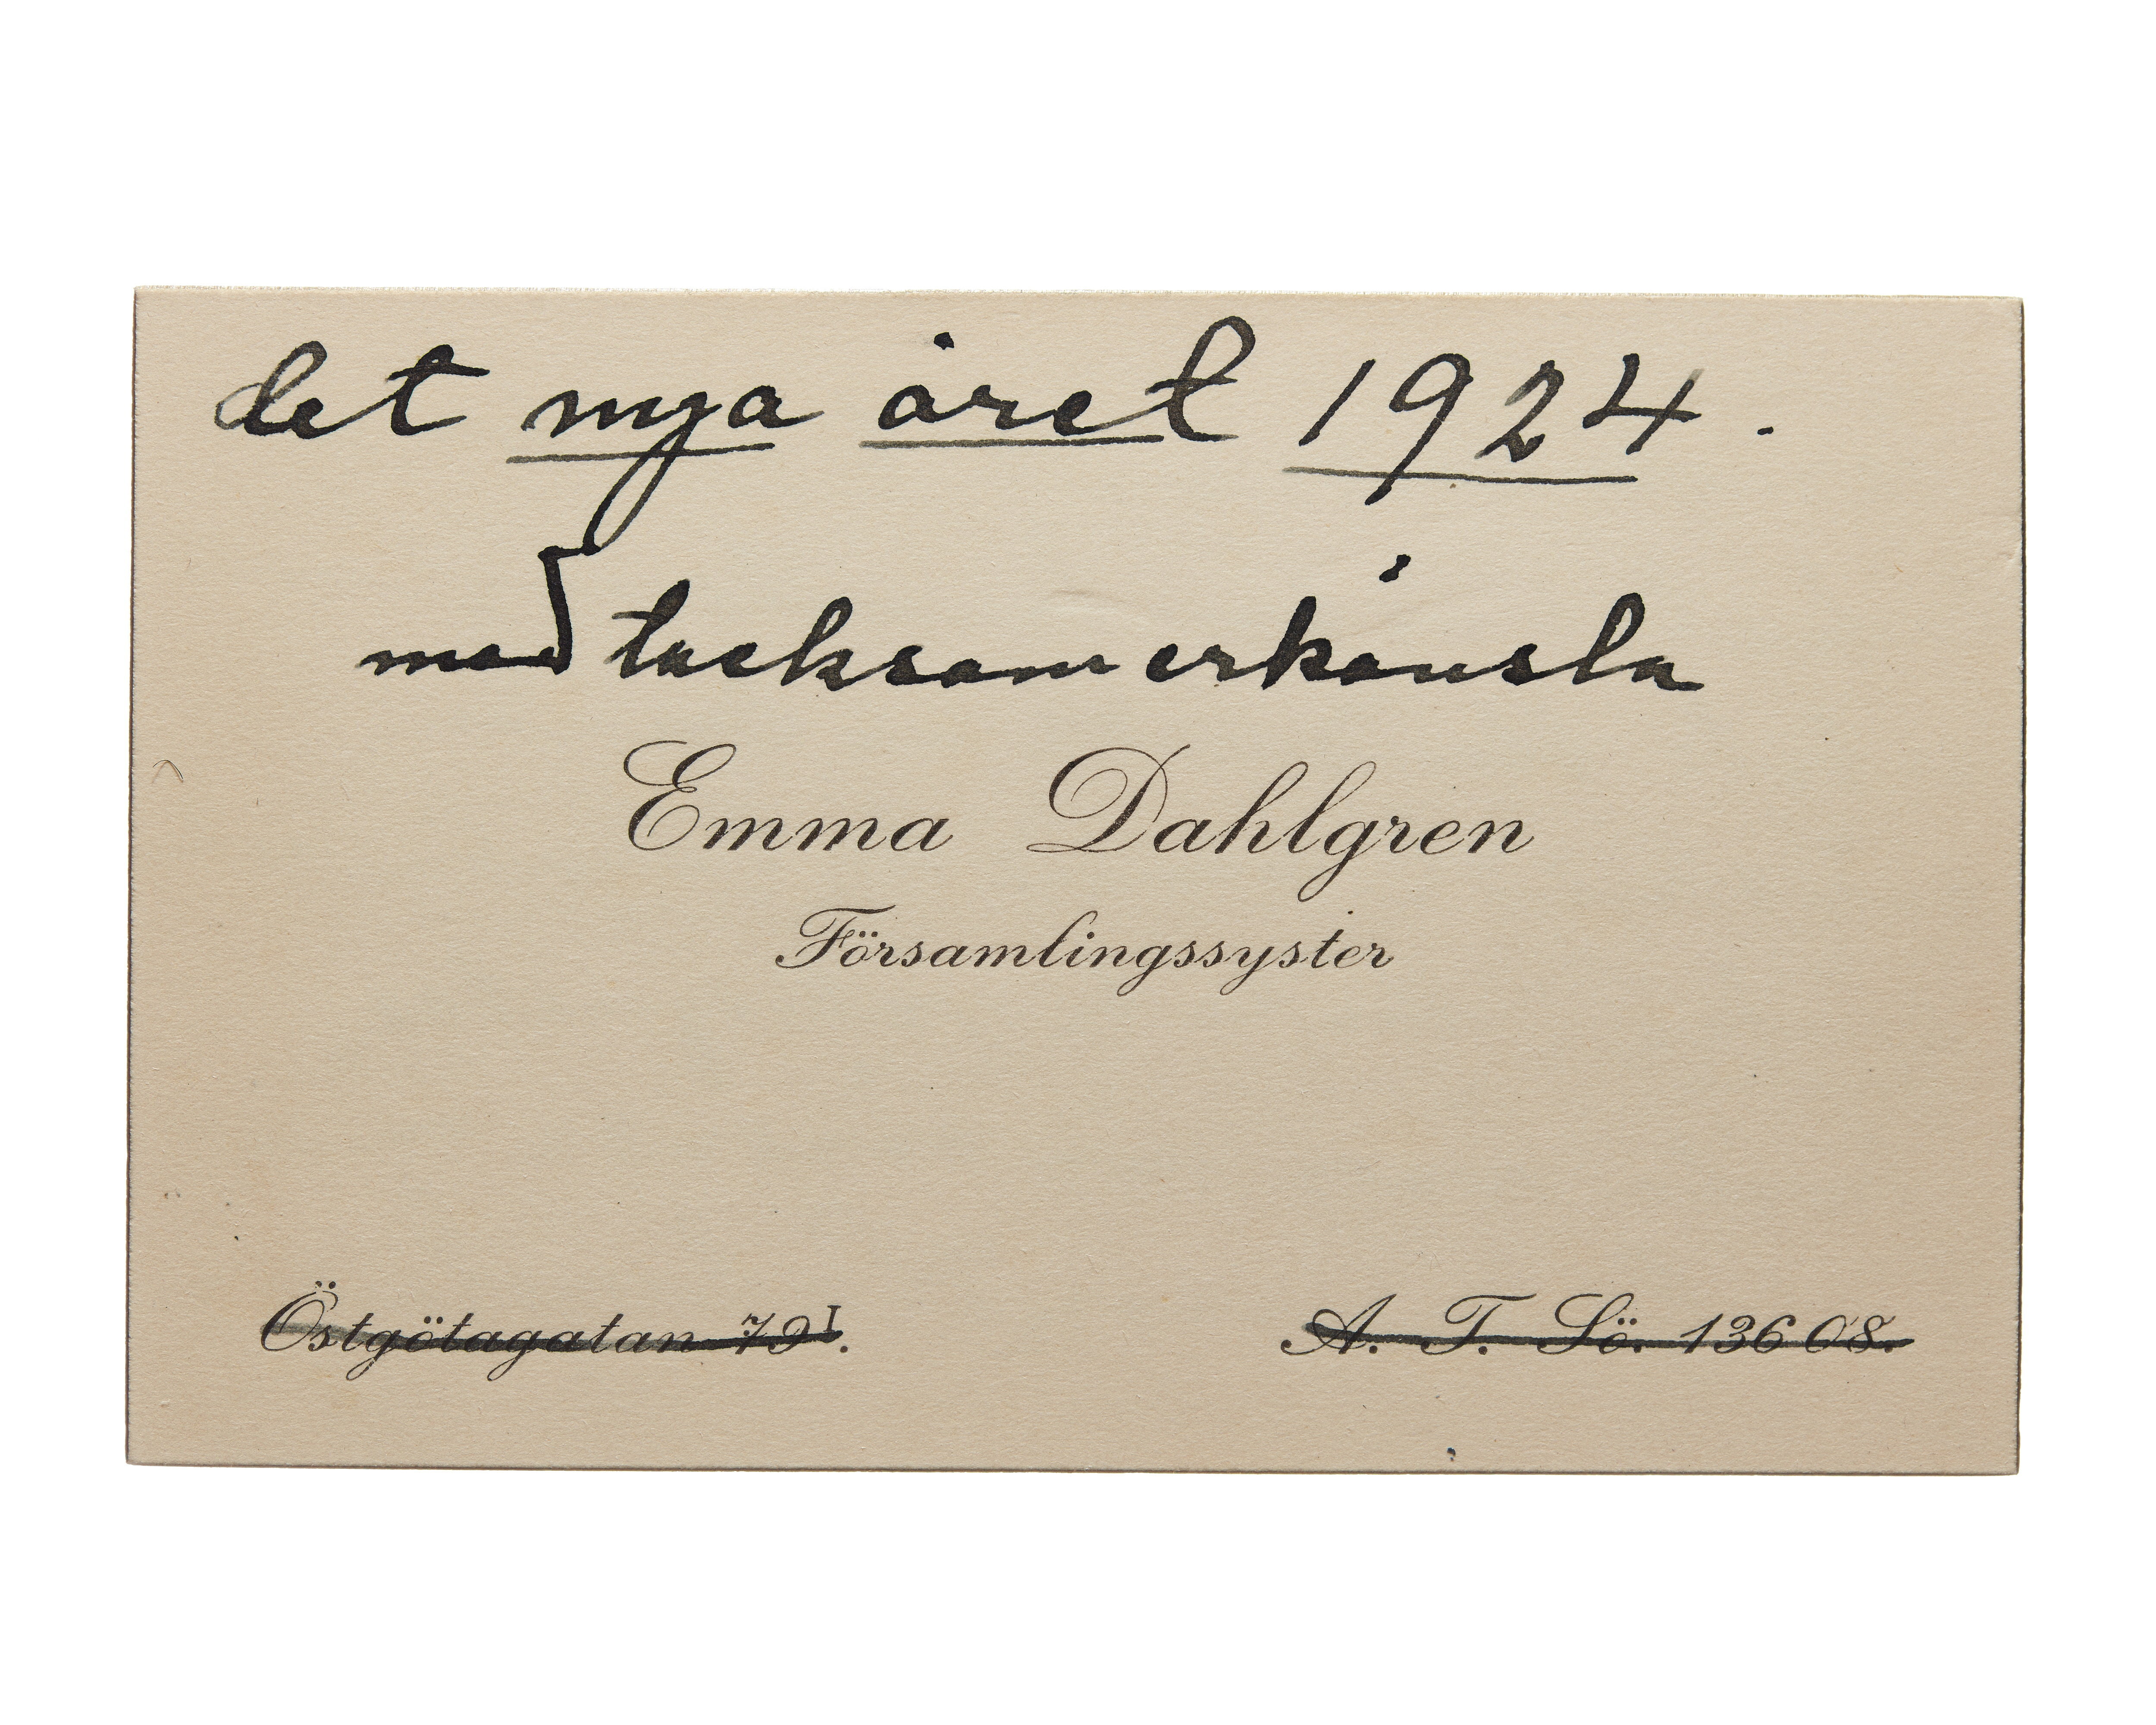 det nya året 1924.
med tacksam erkänsla
Emma Dahlgren
Församlingssyster
Östgötagatan 79I.
A. T. Sö. 136 08.